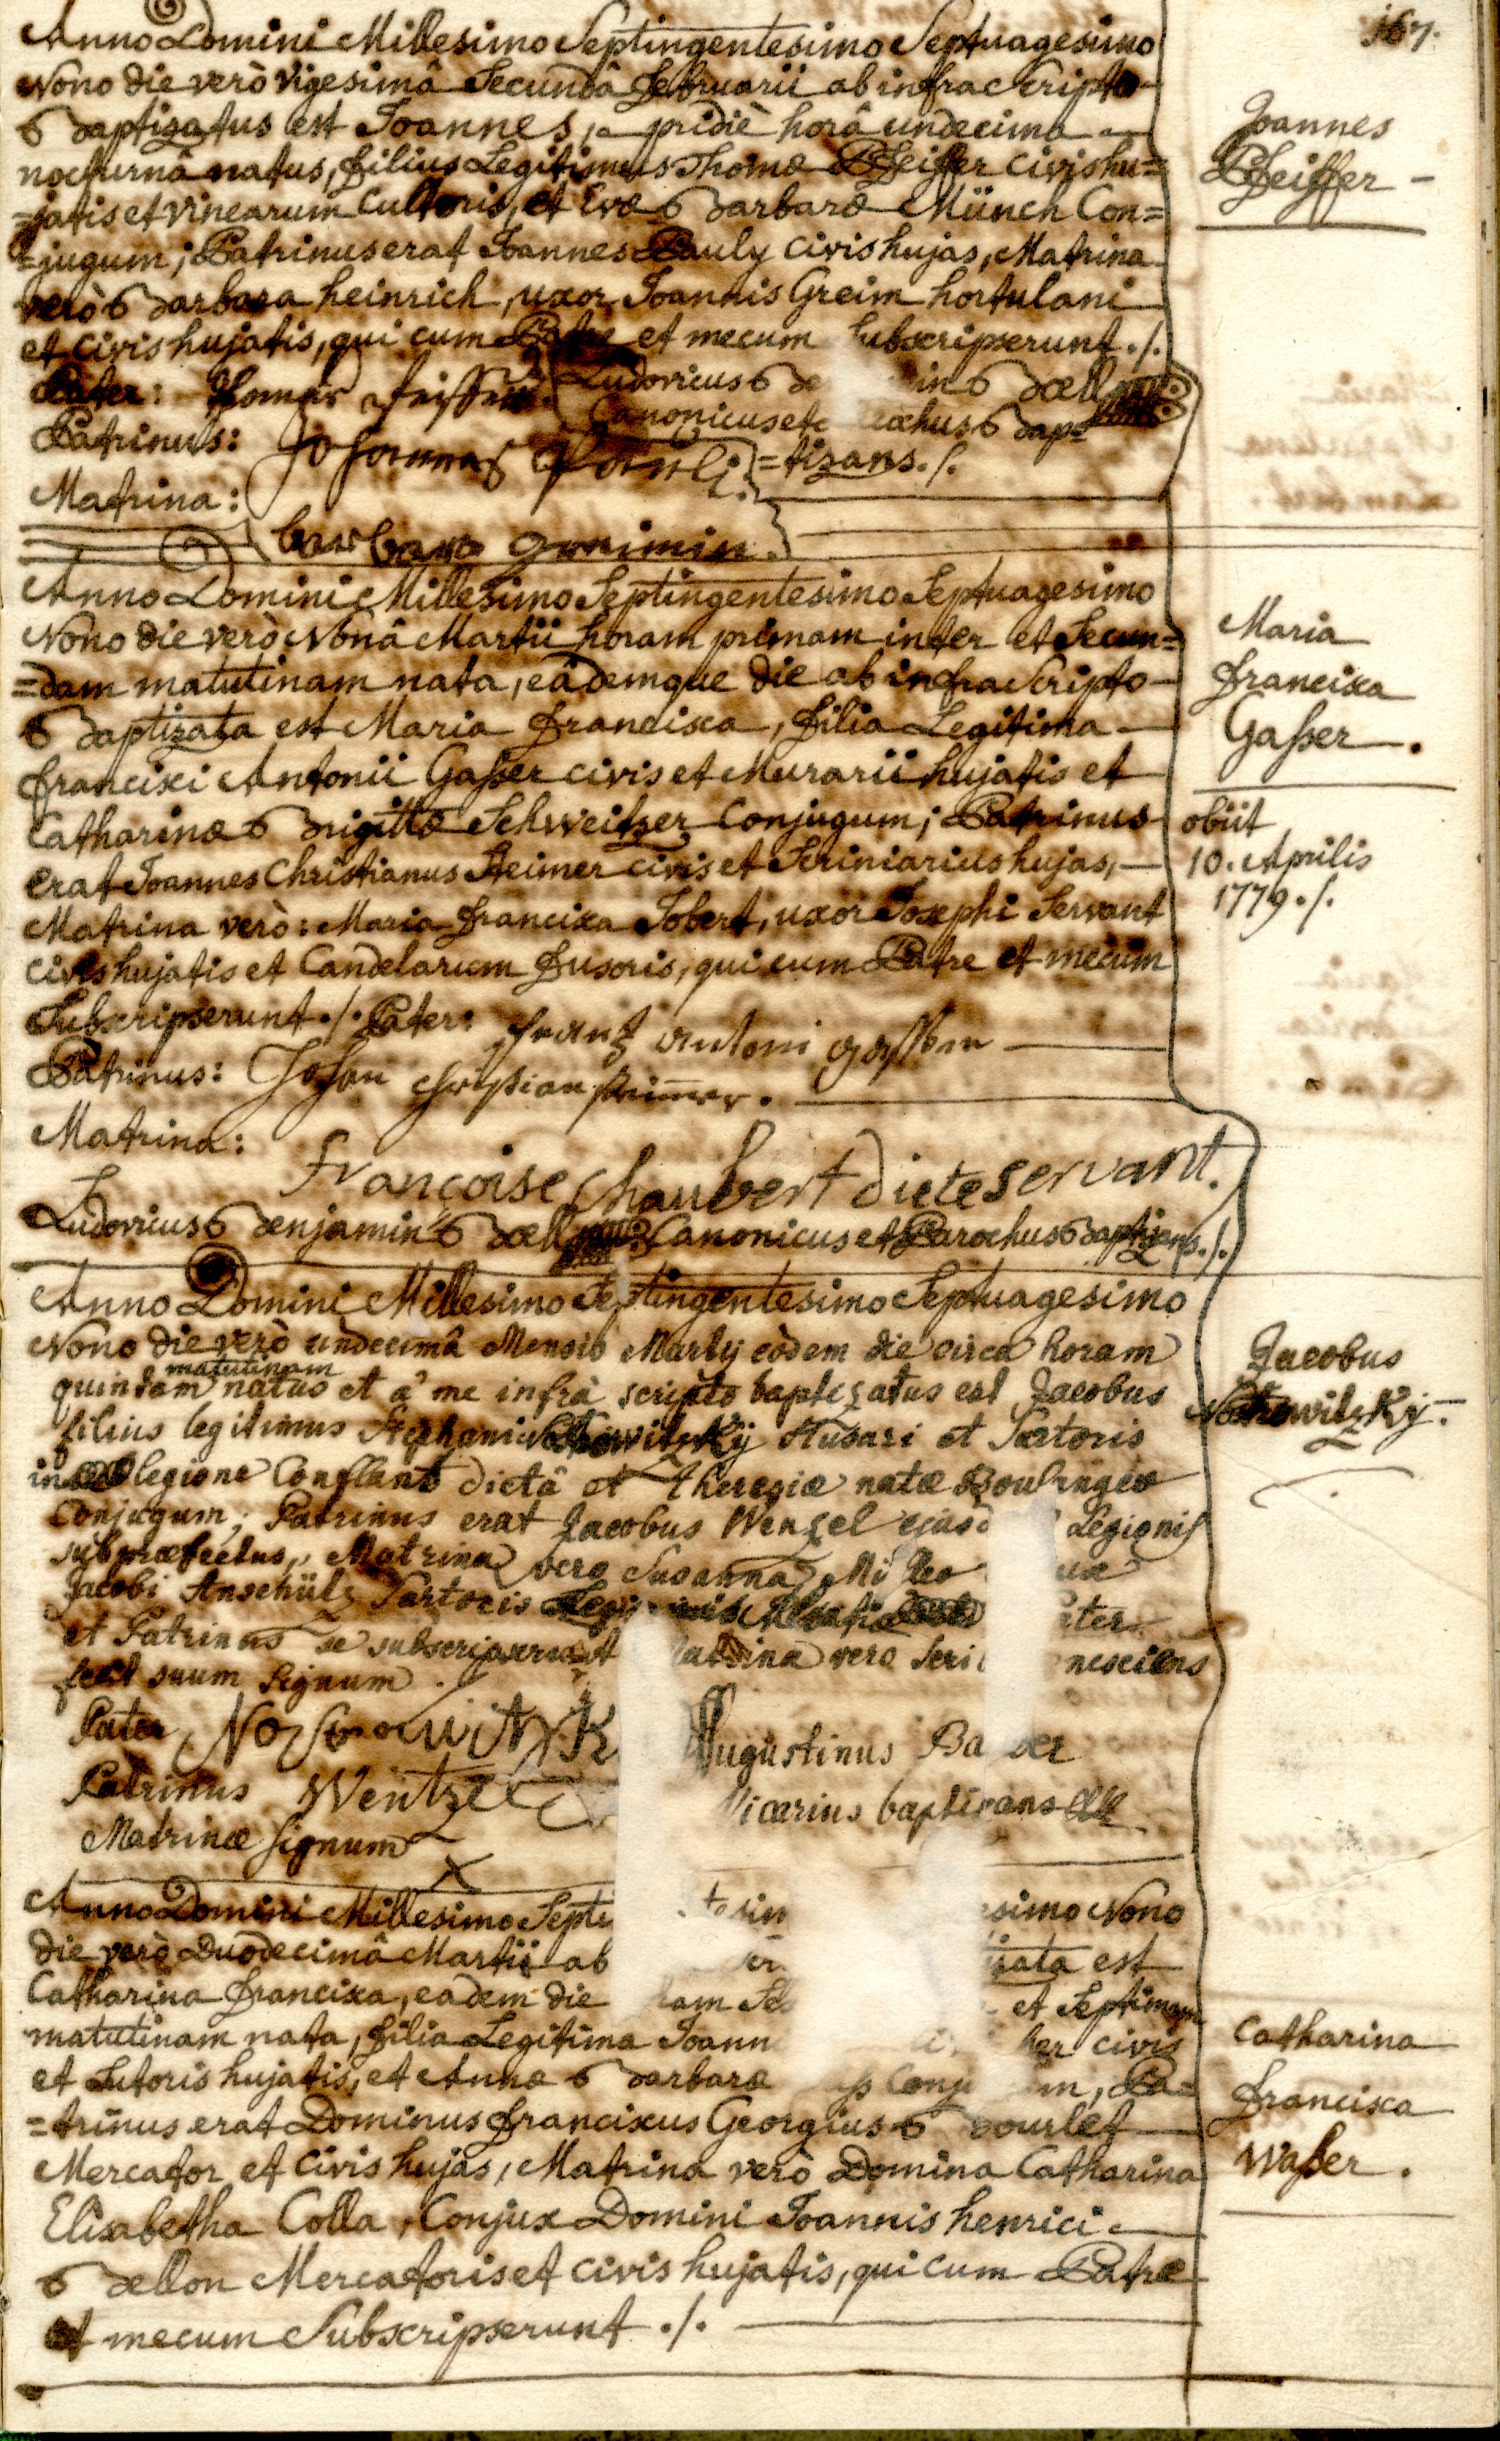 167.
Anno Domini Millesimo Septingentesimo Septuagesimo
Nono die verò vigesimâ Secundâ Februarii ab infrascripto
Baptizatus est Joannes, pridiè horâ undecima
nocturnâ natus, Filius Legitimus Thomæ Pfeiffer civis hu=
=jatis et vinearum Cultoris, et Evæ Barbaræ Münch Con=
=jugum; Patrinus erat Joannes Pauly civis hujas, Matrina
verò Barbara heinrich, uxor Joannis Greim hortulani
et civis hujatis, qui cum Patre et mecum Subscripserunt ./.
Joannes
Pfeiffer
Pater: Thomas
Ludovicus
Canonicus et
Bap=
=tizans ./.
Patrinus: Johannes Pauli
Matrina:
barbara
Anno Domini Millesimo Septingentesimo Septuagesimo
Nono die verò Nonâ Martii horam primam inter et Secun=
=dam matutinam nata, eâdemque die ab infra Scripto
Baptizata est Maria Francisca, Filia Legitima
Francisci Antonii Gaßer civis et Murarii hujatis et
Catharinæ Brigittæ Schweitzer Conjugum; Patrinus
erat Joannes Christianus Steimer civis et Scriniarius hujas,
Matrina verò: Maria Francisca Jobert, uxor Josephi Servant
civis hujatis et Candelarum Fusoris, qui cum Patre et mecum
Subscripserunt ./. Pater: Frantz antoni
Patrinus: Johan
Matrina: Françoise Chaubert dicte servant.
Ludovicus Benjamin Canonicus et Parochus Baptizans ./.
Maria
Francisca
Gaßer.
obiit
10. Aprilis
1779 ./.
Anno Domini Millesimo Septingentesimo Septuagesimo
Nono die verò undecimâ Mensis Martij eòdem die circa horam
quintam matutinam natus et â me infrà scripto baptizatus est Jacobus
filius legitimus Stephani Husari et Sartoris
in legione Conflans dictâ et Theresiæ natæ
Conjugum; Patrinus erat Jacobus Wenzel Legionis
subpræfectus, Matrina vero Susanna
Jacobi Anschütz Sartoris
et Patrinus se subscripserunt vero
fecit suum Signum ./.
Jacobus
Pater
Augustinus
Patrinus Wentzel
Vicarius baptizans
Matrinæ signum X
Anno Domini Millesimo Nono
die verò Duodecimâ Martii ab est
Catharina Francisca, eâdem die et Septimam
matutinam nata, Filia Legitima civis
et Sutoris hujatis, et Annæ Barbaræ Pa=
=trinus erat Dominus Franciscus Georgius Bourlet
Mercator et civis hujas, Matrina verò Domina Catharina
Elisabetha Colla, Conjux Domini Joannis henrici
Bellon Mercatoris et civis hujatis, qui cum Patre
et mecum Subscripserunt ./.
Catharina
Francisca